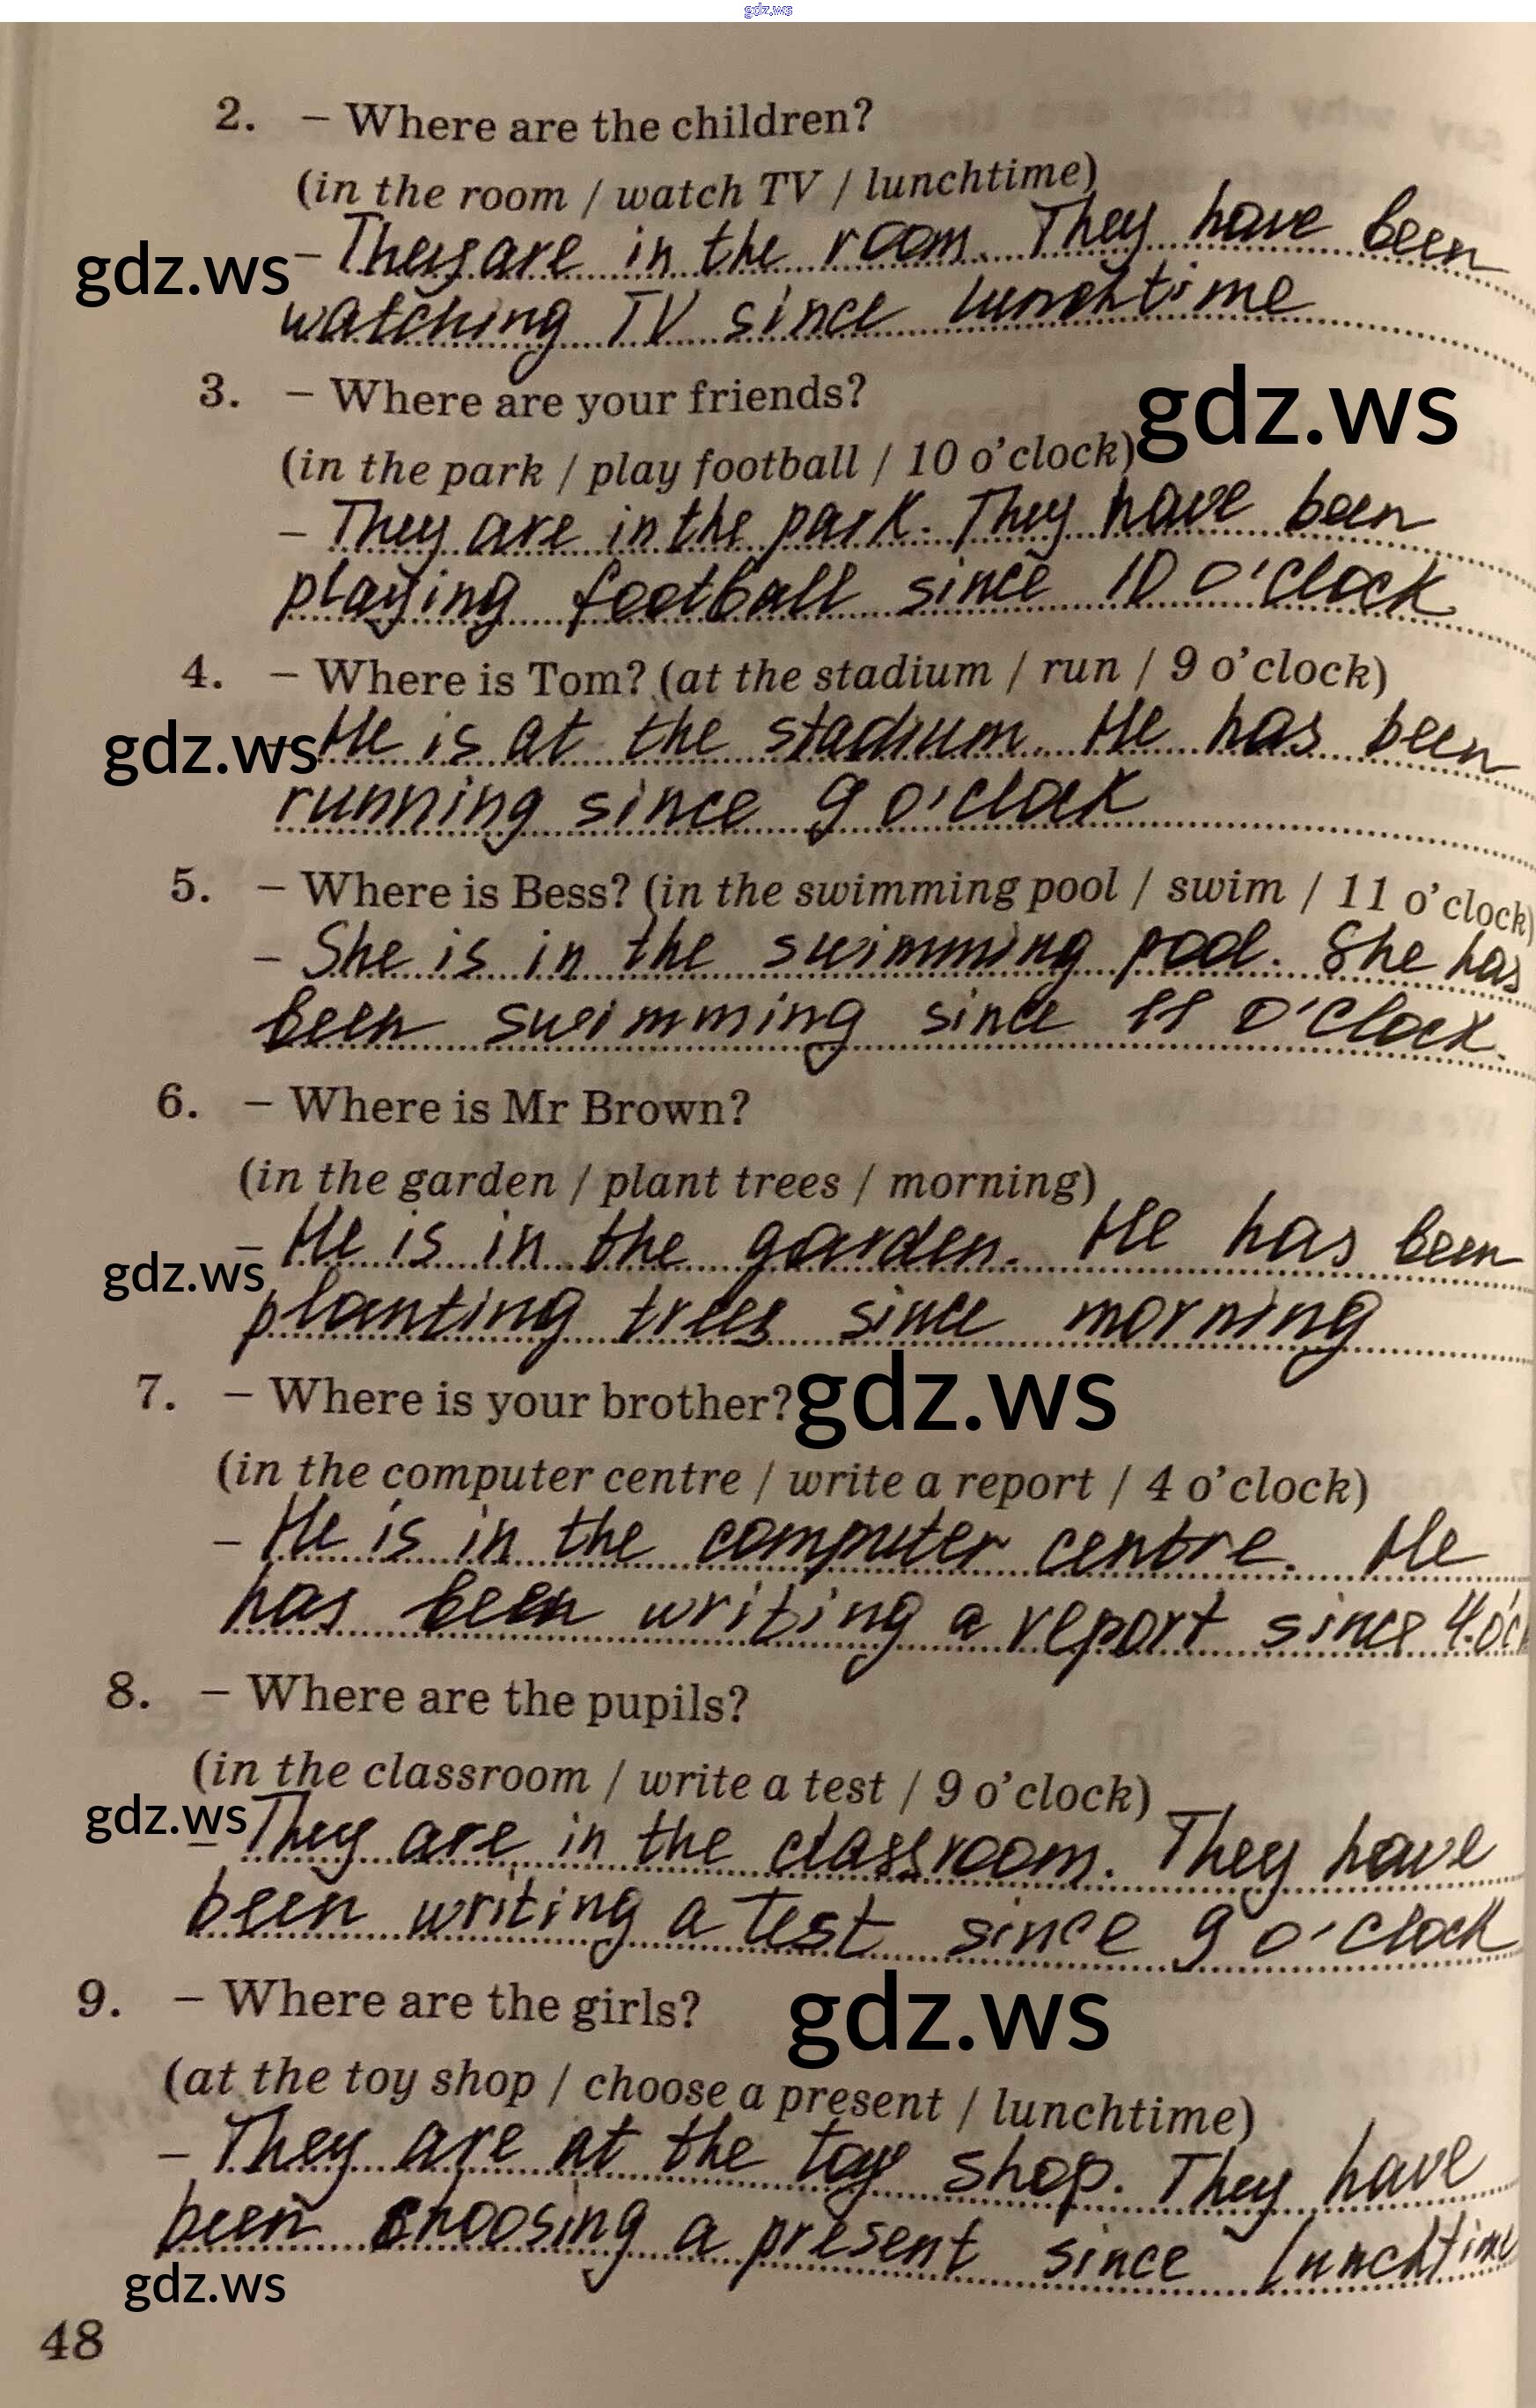 gdz.ws
2. – Where are the children?
(in the room / watch TV / lunchtime)
– They are in the room. They have been
gdz.ws
watching TV since lunchtime
3. – Where are your friends?
gdz.ws
(in the park / play football / 10 o'clock)
– They are in the park. They have been
playing football since 10 o'clock
4. – Where is Tom? (at the stadium / run / 9 o'clock)
– He is at the stadium. He has been
gdz.ws
running since 9 o'clock
5. – Where is Bess? (in the swimming pool / swim / 11 o'clock)
– She is in the swimming pool. She has
been swimming since 11 o'clock.
6. – Where is Mr Brown?
(in the garden / plant trees / morning)
– He is in the garden. He has been
gdz.ws
planting trees since morning
7. – Where is your brother?
gdz.ws
(in the computer centre / write a report / 4 o'clock)
– He is in the computer centre. He
has been writing a report since 4 o'cl
8. – Where are the pupils?
(in the classroom / write a test / 9 o'clock)
gdz.ws
– They are in the classroom. They have
been writing a test since 9 o'clock
9. – Where are the girls?
gdz.ws
(at the toy shop / choose a present / lunchtime)
– They are at the toy shop. They have
been choosing a present since lunchtime
gdz.ws
48